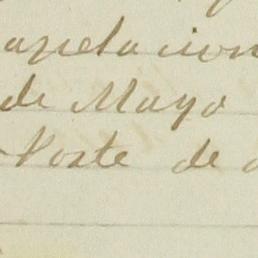 apelacion
de Mayo
Norte de